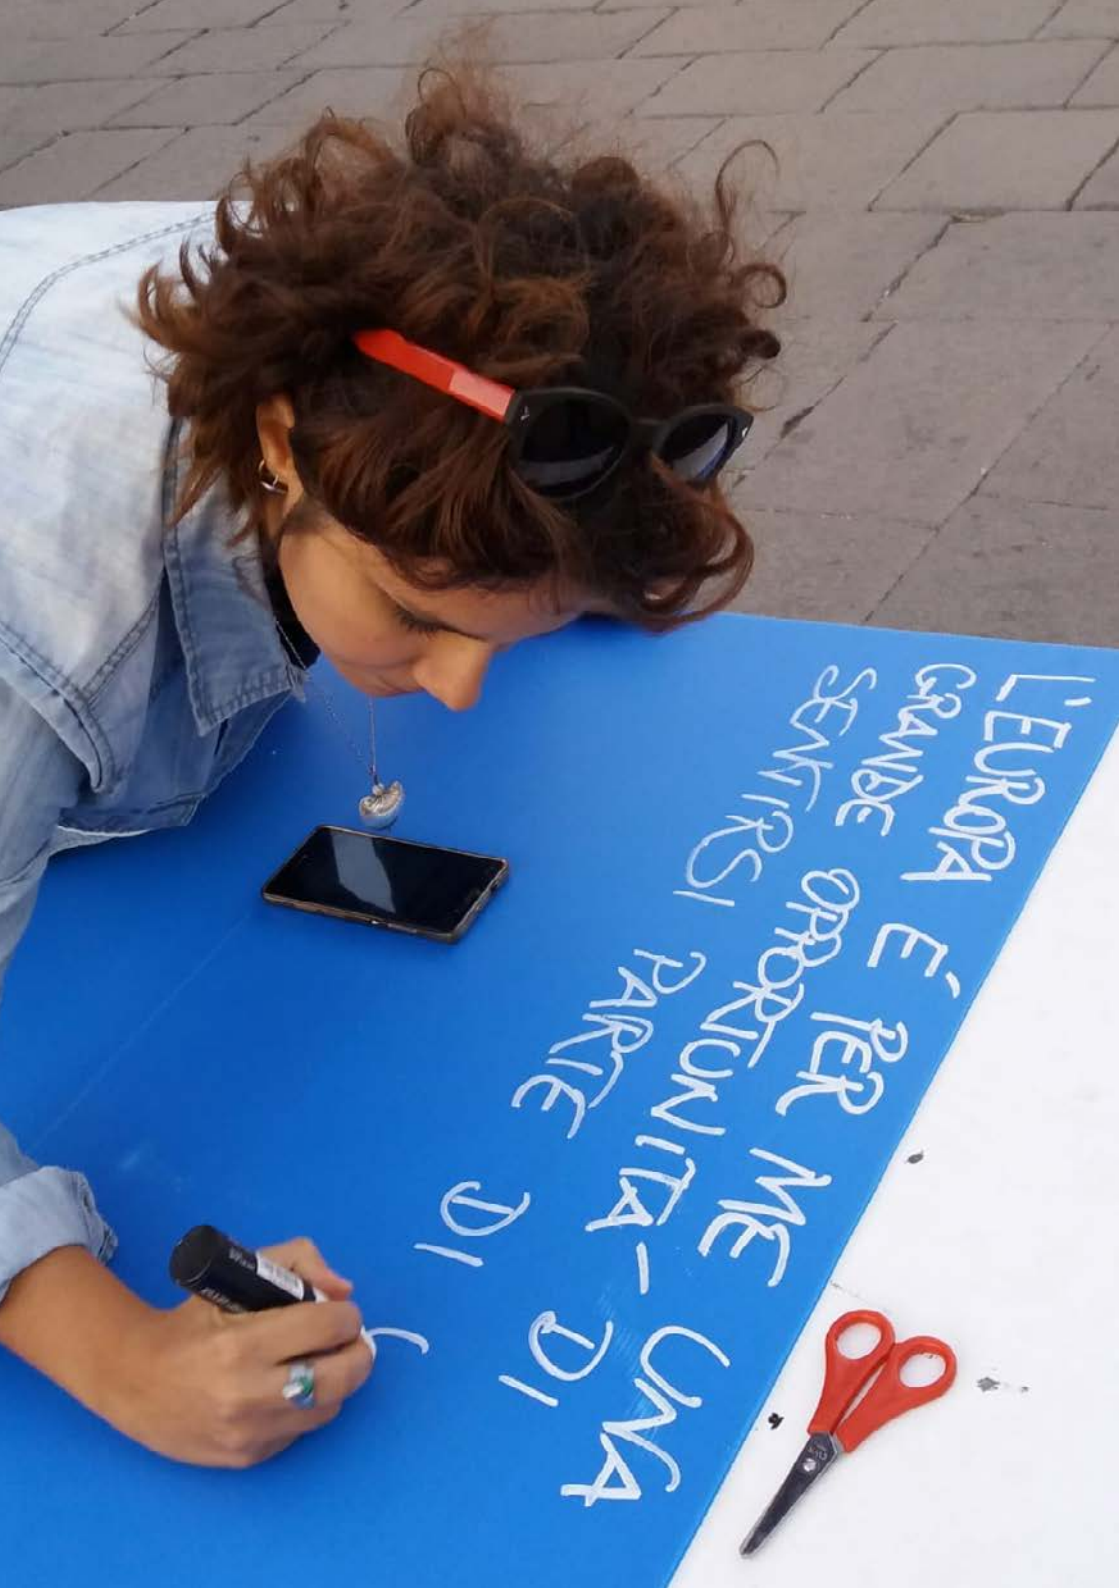 L'EUROPA E' PER ME UNA
GRANDE OPPORTUNITA' DI
SENTIRSI PARTE DI